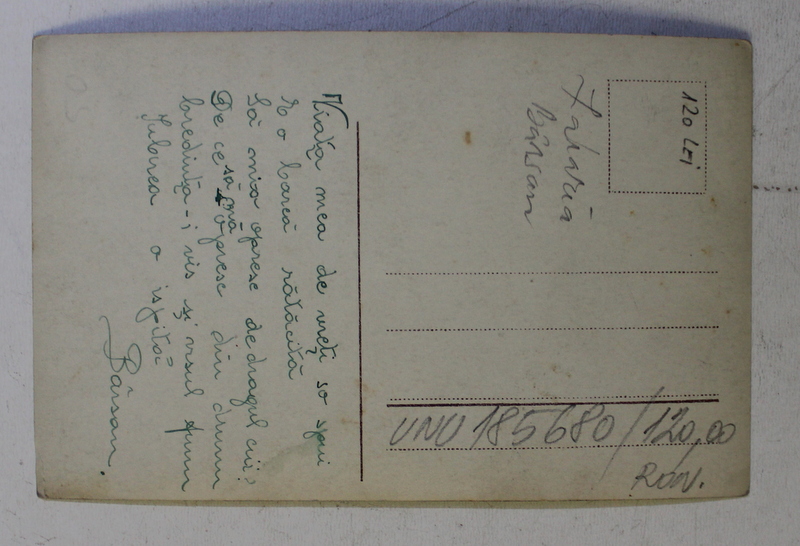 Viața mea de vreți so spui
E o barcă rătăcită
Să mio opresc dedragul cui;
De ce să mă opresc din drum
Credința-i vis și visul fum
Iubirea o ispită
Bârsan.
Zaharia
Bârsan
120 LEI
UNU 185680/120,00
RON.